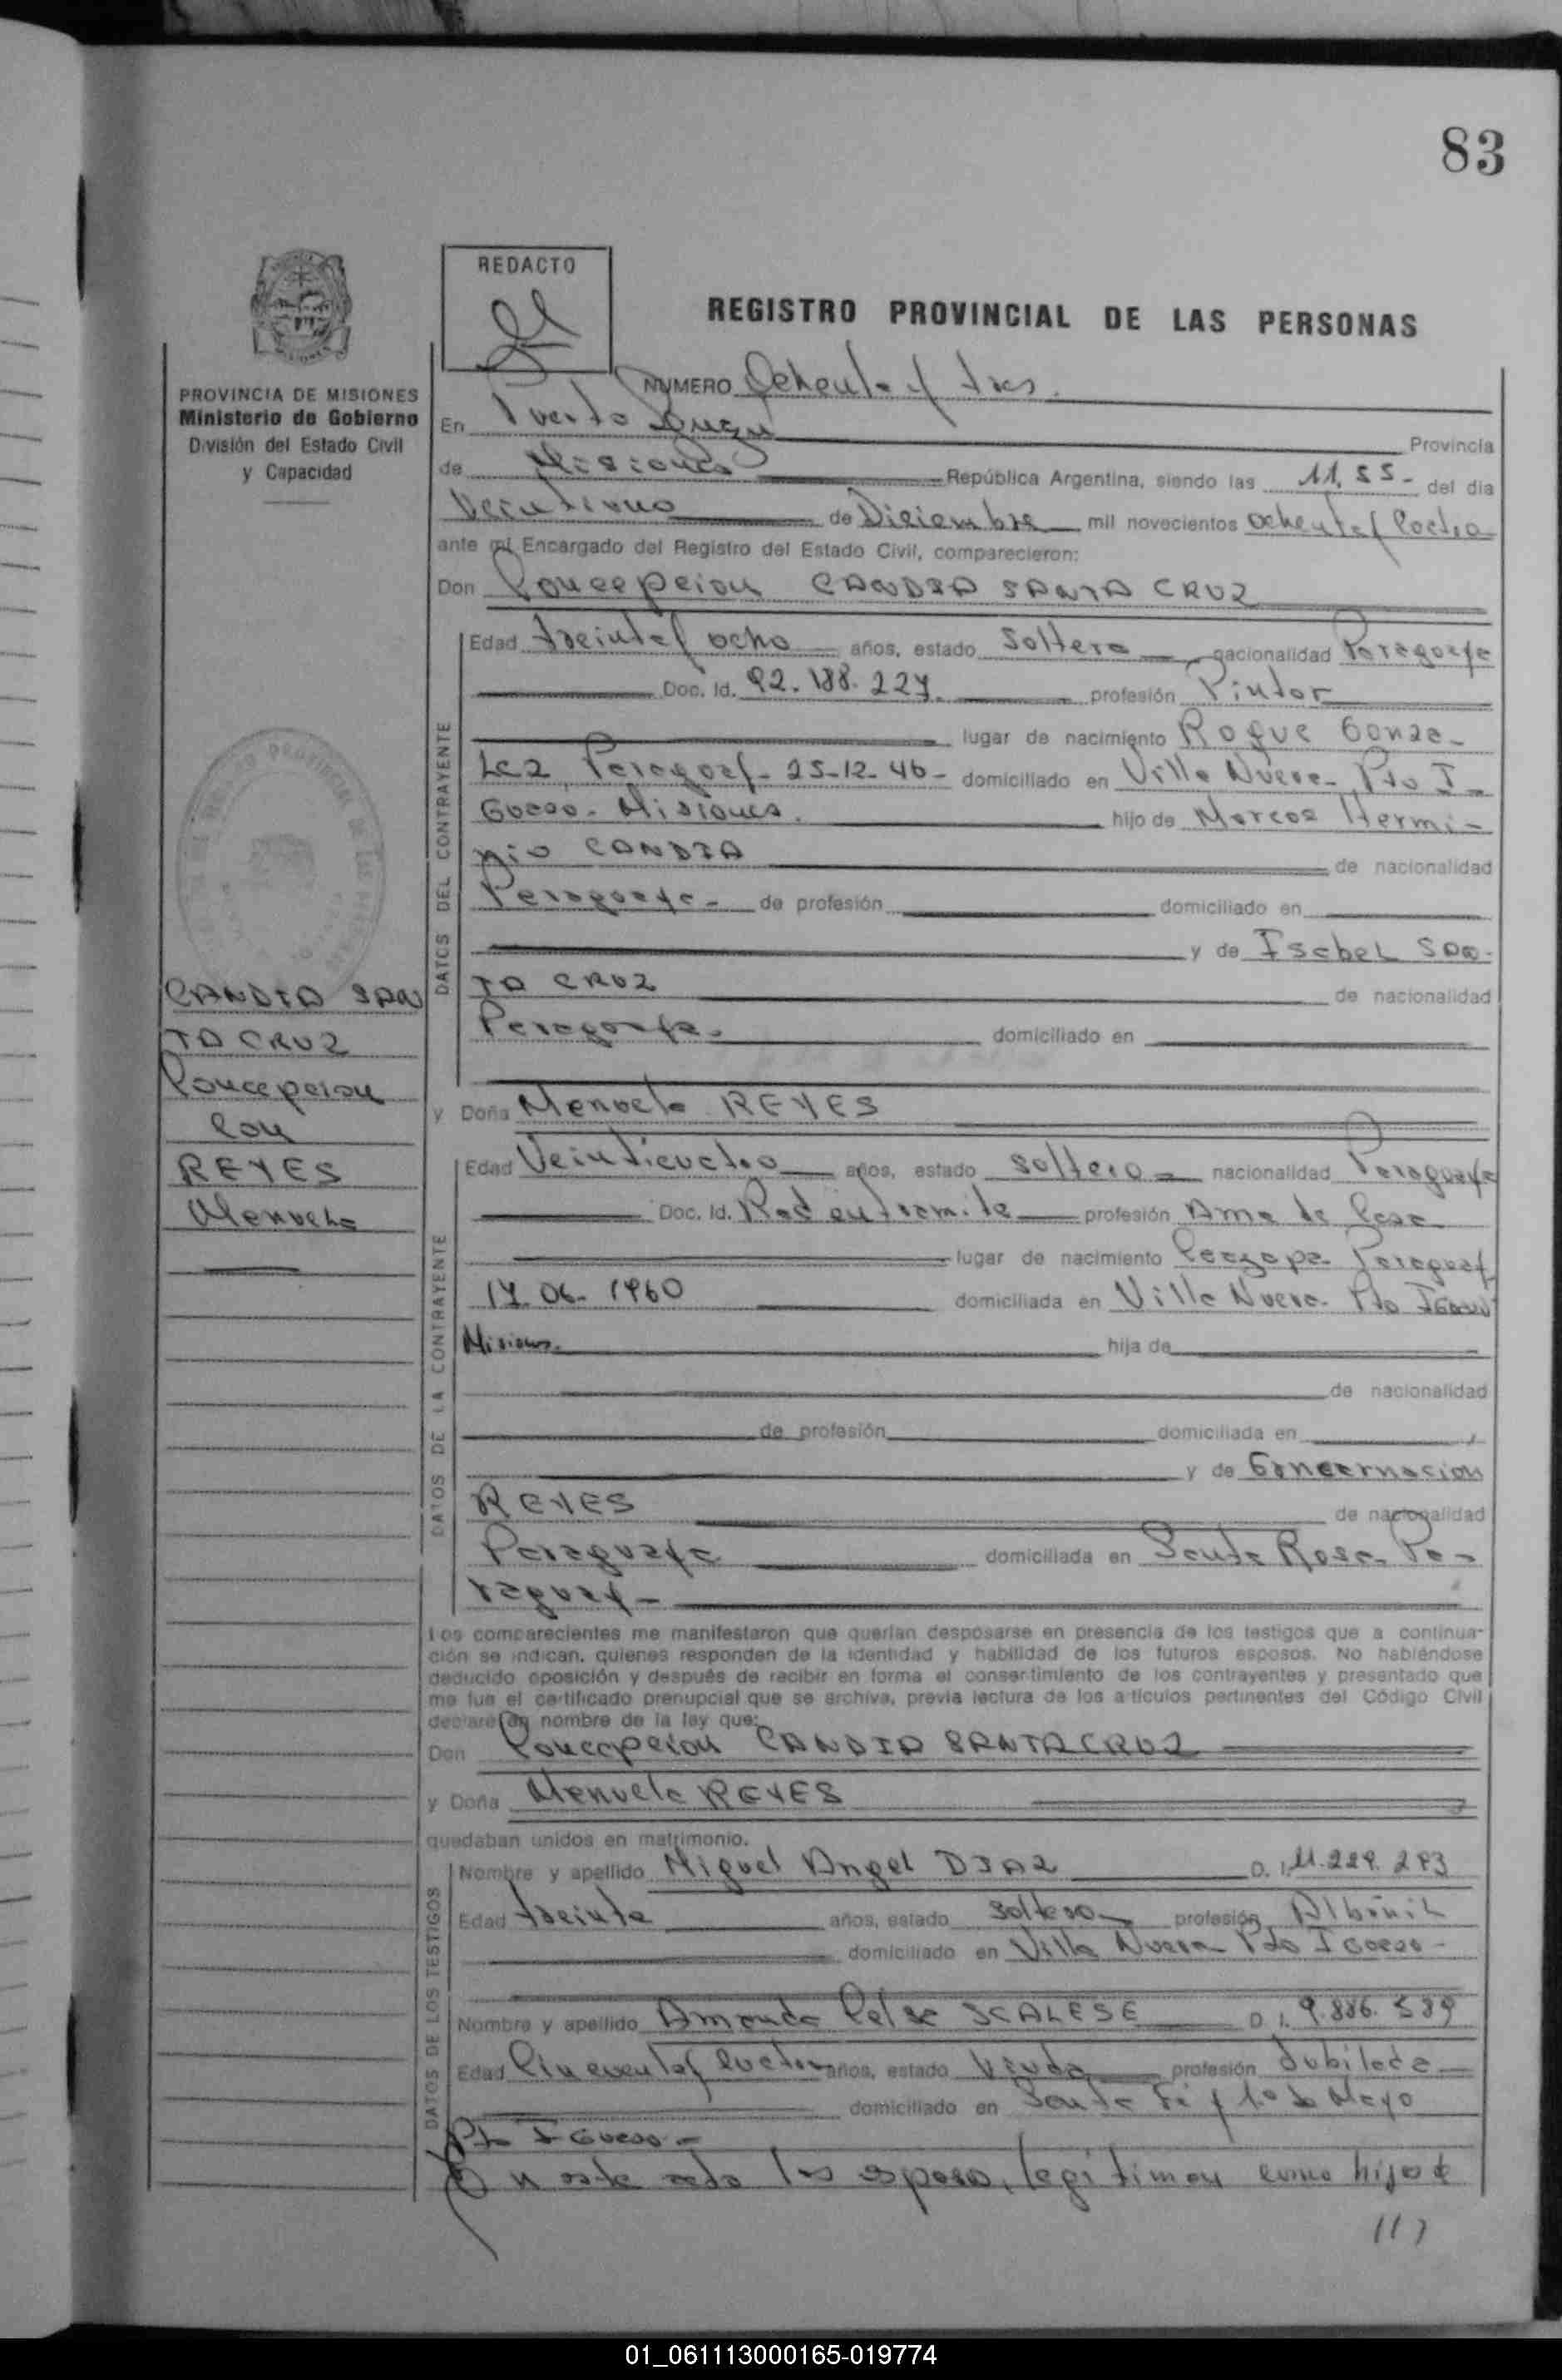 83
REDACTO
REGISTRO PROVINCIAL DE LAS PERSONAS
PROVINCIA DE MISIONES
Ministerio de Gobierno
División del Estado Civil
y Capacidad
NUMERO Ochenta y tres.
En Puerto Iguazú Provincia
de Misiones República Argentina, siendo las 11,55- del día
Veintiuno de Diciembre mil novecientos ochenta y cuatro
ante mí Encargado del Registro del Estado Civil, comparecieron:
Don Concepcion CANDIA SANTA CRUZ
Edad treinta y ocho años, estado Soltero nacionalidad Paraguaya
Doc. Id. 92.188.227. profesión Pintor
lugar de nacimiento Roque Gonza-
lez Paraguay- 25-12-46- domiciliado en Villa Nueva- Pto I-
Guazú- Misiones. hijo de Marcos Hermi-
nio CANDIA de nacionalidad
Paraguaya- de profesión domiciliado en
y de Isabel SAN-
TA CRUZ de nacionalidad
Paraguaya. domiciliado en
CANDIA SAN
TA CRUZ
Concepcion
Con
REYES
Manuela
DATOS DEL CONTRAYENTE
y Doña Manuela REYES
Edad Veinticuatro años, estado soltera- nacionalidad Paraguaya
Doc. Id. Rad en tramite profesión Ama de Casa
lugar de nacimiento Caazapa- Paraguay
17-06-1960 domiciliada en Villa Nueva- Pto Iguazú
Misiones. hija de
de nacionalidad
de profesión domiciliada en
y de Encarnacion
REYES de nacionalidad
Paraguaya domiciliada en Santa Rosa- Pa-
raguay-
DATOS DE LA CONTRAYENTE
Los comparecientes me manifestaron que querían desposarse en presencia de los testigos que a continua-
ción se indican, quienes responden de la identidad y habilidad de los futuros esposos. No habiéndose
deducido oposición y después de recibir en forma el consentimiento de los contrayentes y presentado que
me fue el certificado prenupcial que se archiva, previa lectura de los artículos pertinentes del Código Civil
declaré en nombre de la ley que:
Don Concepcion CANDIA SANTACRUZ
y Doña Manuela REYES
quedaban unidos en matrimonio.
Nombre y apellido Miguel Angel DIAZ D. I. 11.229.293
Edad treinta años, estado soltero- profesión Albañil
domiciliado en Villa Nueva Pto Iguazú-
Nombre y apellido Amanda SCALESE D. I. 9.886.589
Edad Cincuenta y cuatro años, estado Viuda profesión Jubilada-
domiciliado en Santa Fé y 1º de Mayo
Pto Iguazú-
DATOS DE LOS TESTIGOS
En este acto los esposos, legitiman como hijos
01_061113000165-019774